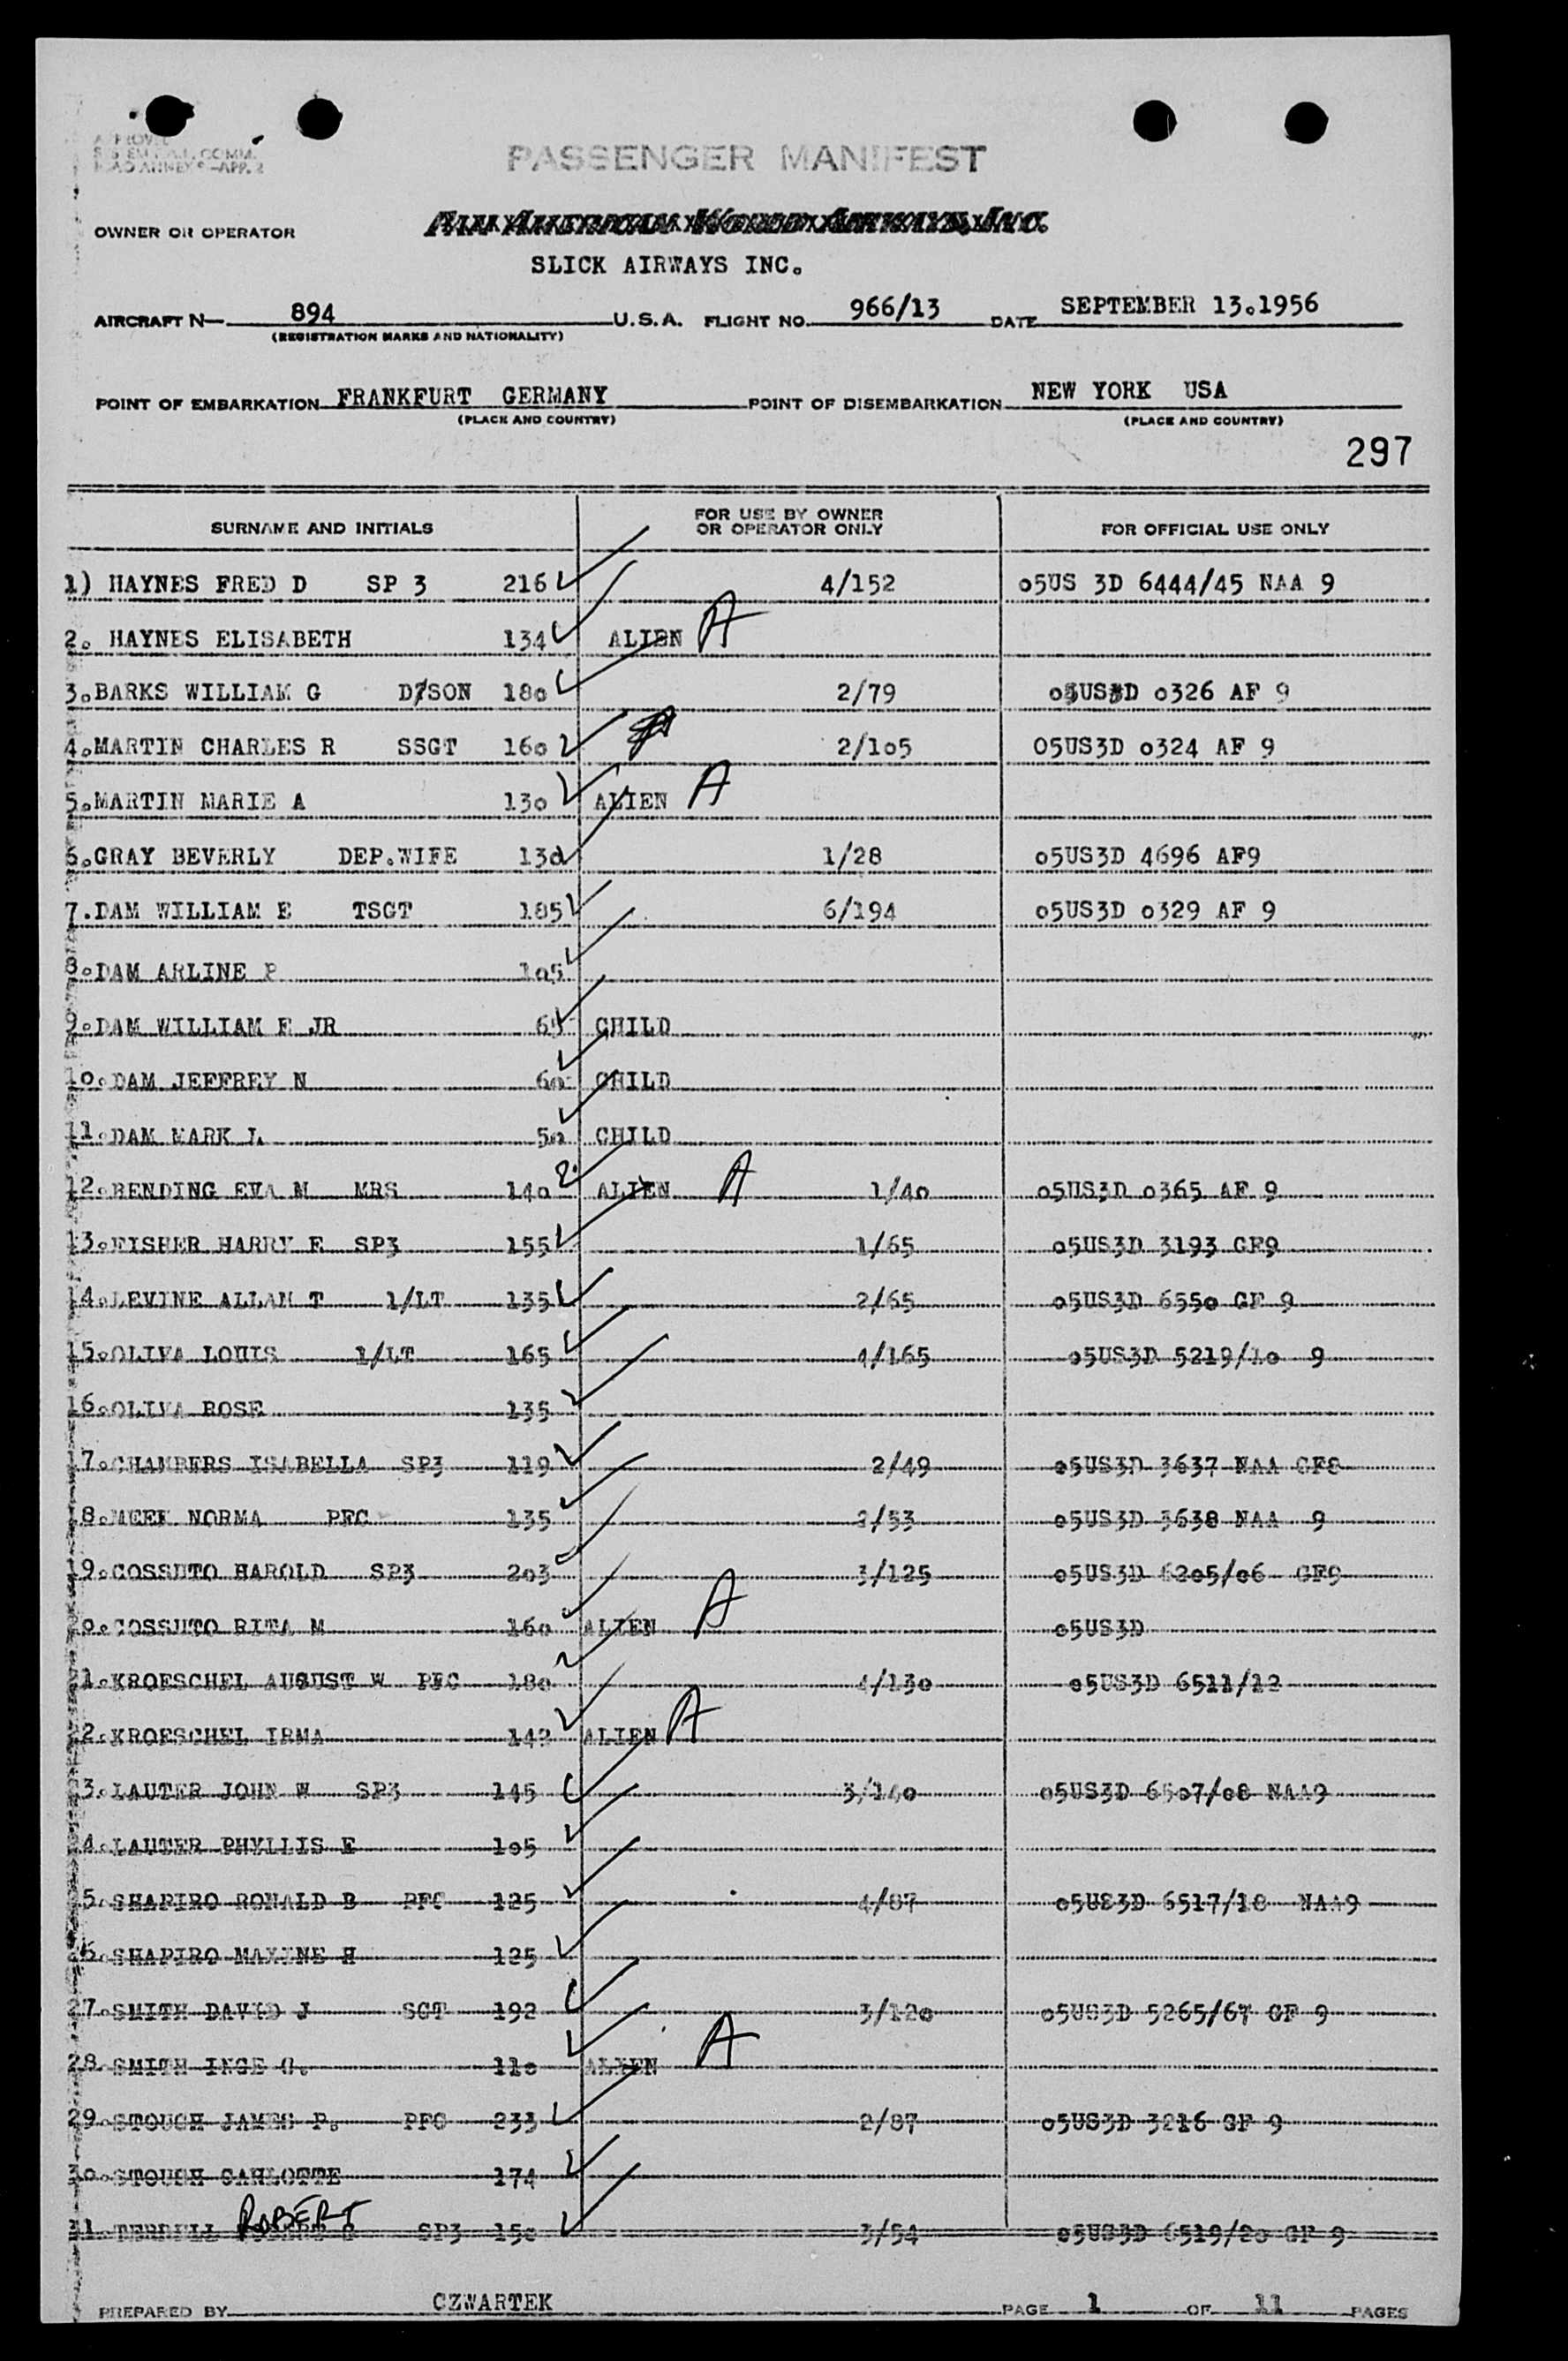 APPROVED
COMM.
ANNEX 9—APP. 2
PASSENGER MANIFEST
OWNER OR OPERATOR PAN AMERICAN WORLD AIRWAYS, INC.
SLICK AIRWAYS INC.
AIRCRAFT N— 894 U.S.A. FLIGHT NO. 966/13 DATE SEPTEMBER 13.1956
(REGISTRATION MARKS AND NATIONALITY)
POINT OF EMBARKATION FRANKFURT GERMANY POINT OF DISEMBARKATION NEW YORK USA
(PLACE AND COUNTRY) (PLACE AND COUNTRY)
297
SURNAME AND INITIALS FOR USE BY OWNER OR OPERATOR ONLY FOR OFFICIAL USE ONLY
1) HAYNES FRED D SP 3 216 4/152 o5US 3D 6444/45 NAA 9
2. HAYNES ELISABETH 134 ALIEN A
3.BARKS WILLIAM G D/SON 18o 2/79 o5US3D o326 AF 9
4.MARTIN CHARLES R SSGT 16o A 2/1o5 O5US3D o324 AF 9
5.MARTIN MARIE A 13o ALIEN A
6.GRAY BEVERLY DEP.WIFE 13o 1/28 o5US3D 4696 AF9
7.DAM WILLIAM E TSGT 185 6/194 o5US3D o329 AF 9
8.DAM ARLINE P 1o5
9.DAM WILLIAM E JR 65 CHILD
1o.DAM JEFFREY N 6o CHILD
11.DAM MARK L 5o CHILD
12.BENDING EVA M MRS 14o ALIEN A 1/4o o5US3D o365 AF 9
13.FISHER HARRY F SP3 155 1/65 o5US3D 3193 GF9
14.LEVINE ALLAN T 1/LT 135 2/65 o5US3D 655o GF 9
15.OLIVA LOUIS 1/LT 165 4/165 o5US3D 5219/1o 9
16.OLIVA ROSE 135
17.CHAMBERS ISABELLA SP3 119 2/49 o5US3D 3637 NAA GF8
18.MEEK NORMA PFC 135 2/53 o5US3D 3638 NAA 9
19.COSSUTO HAROLD SP3 2o3 3/125 o5US3D 62o5/o6 GF9
2o.COSSUTO RITA M 16o ALIEN A o5US3D
21.KROESCHEL AUGUST W PFC 18o 4/13o o5US3D 6511/12
22.KROESCHEL IRMA 142 ALIEN A
23.LAUTER JOHN W SP3 145 3/14o o5US3D 65o7/o8 NAA9
24.LAUTER PHYLLIS E 1o5
25.SHAPIRO RONALD B PFC 125 4/87 o5US3D 6517/18 NAA9
26.SHAPIRO MAXINE H 125
27.SMITH DAVID J SGT 192 3/12o o5US3D 5265/67 GF 9
28.SMITH INGE C. 11o ALIEN A
29.STOUCH JAMES P. PFC 233 2/87 o5US3D 3216 GF 9
3o.STOUCH CARLOTTE 174
31.TERRELL ROBERT SP3 15o 3/54 o5US3D 6519/2o GF 9
PREPARED BY CZWARTEK PAGE 1 OF 11 PAGES